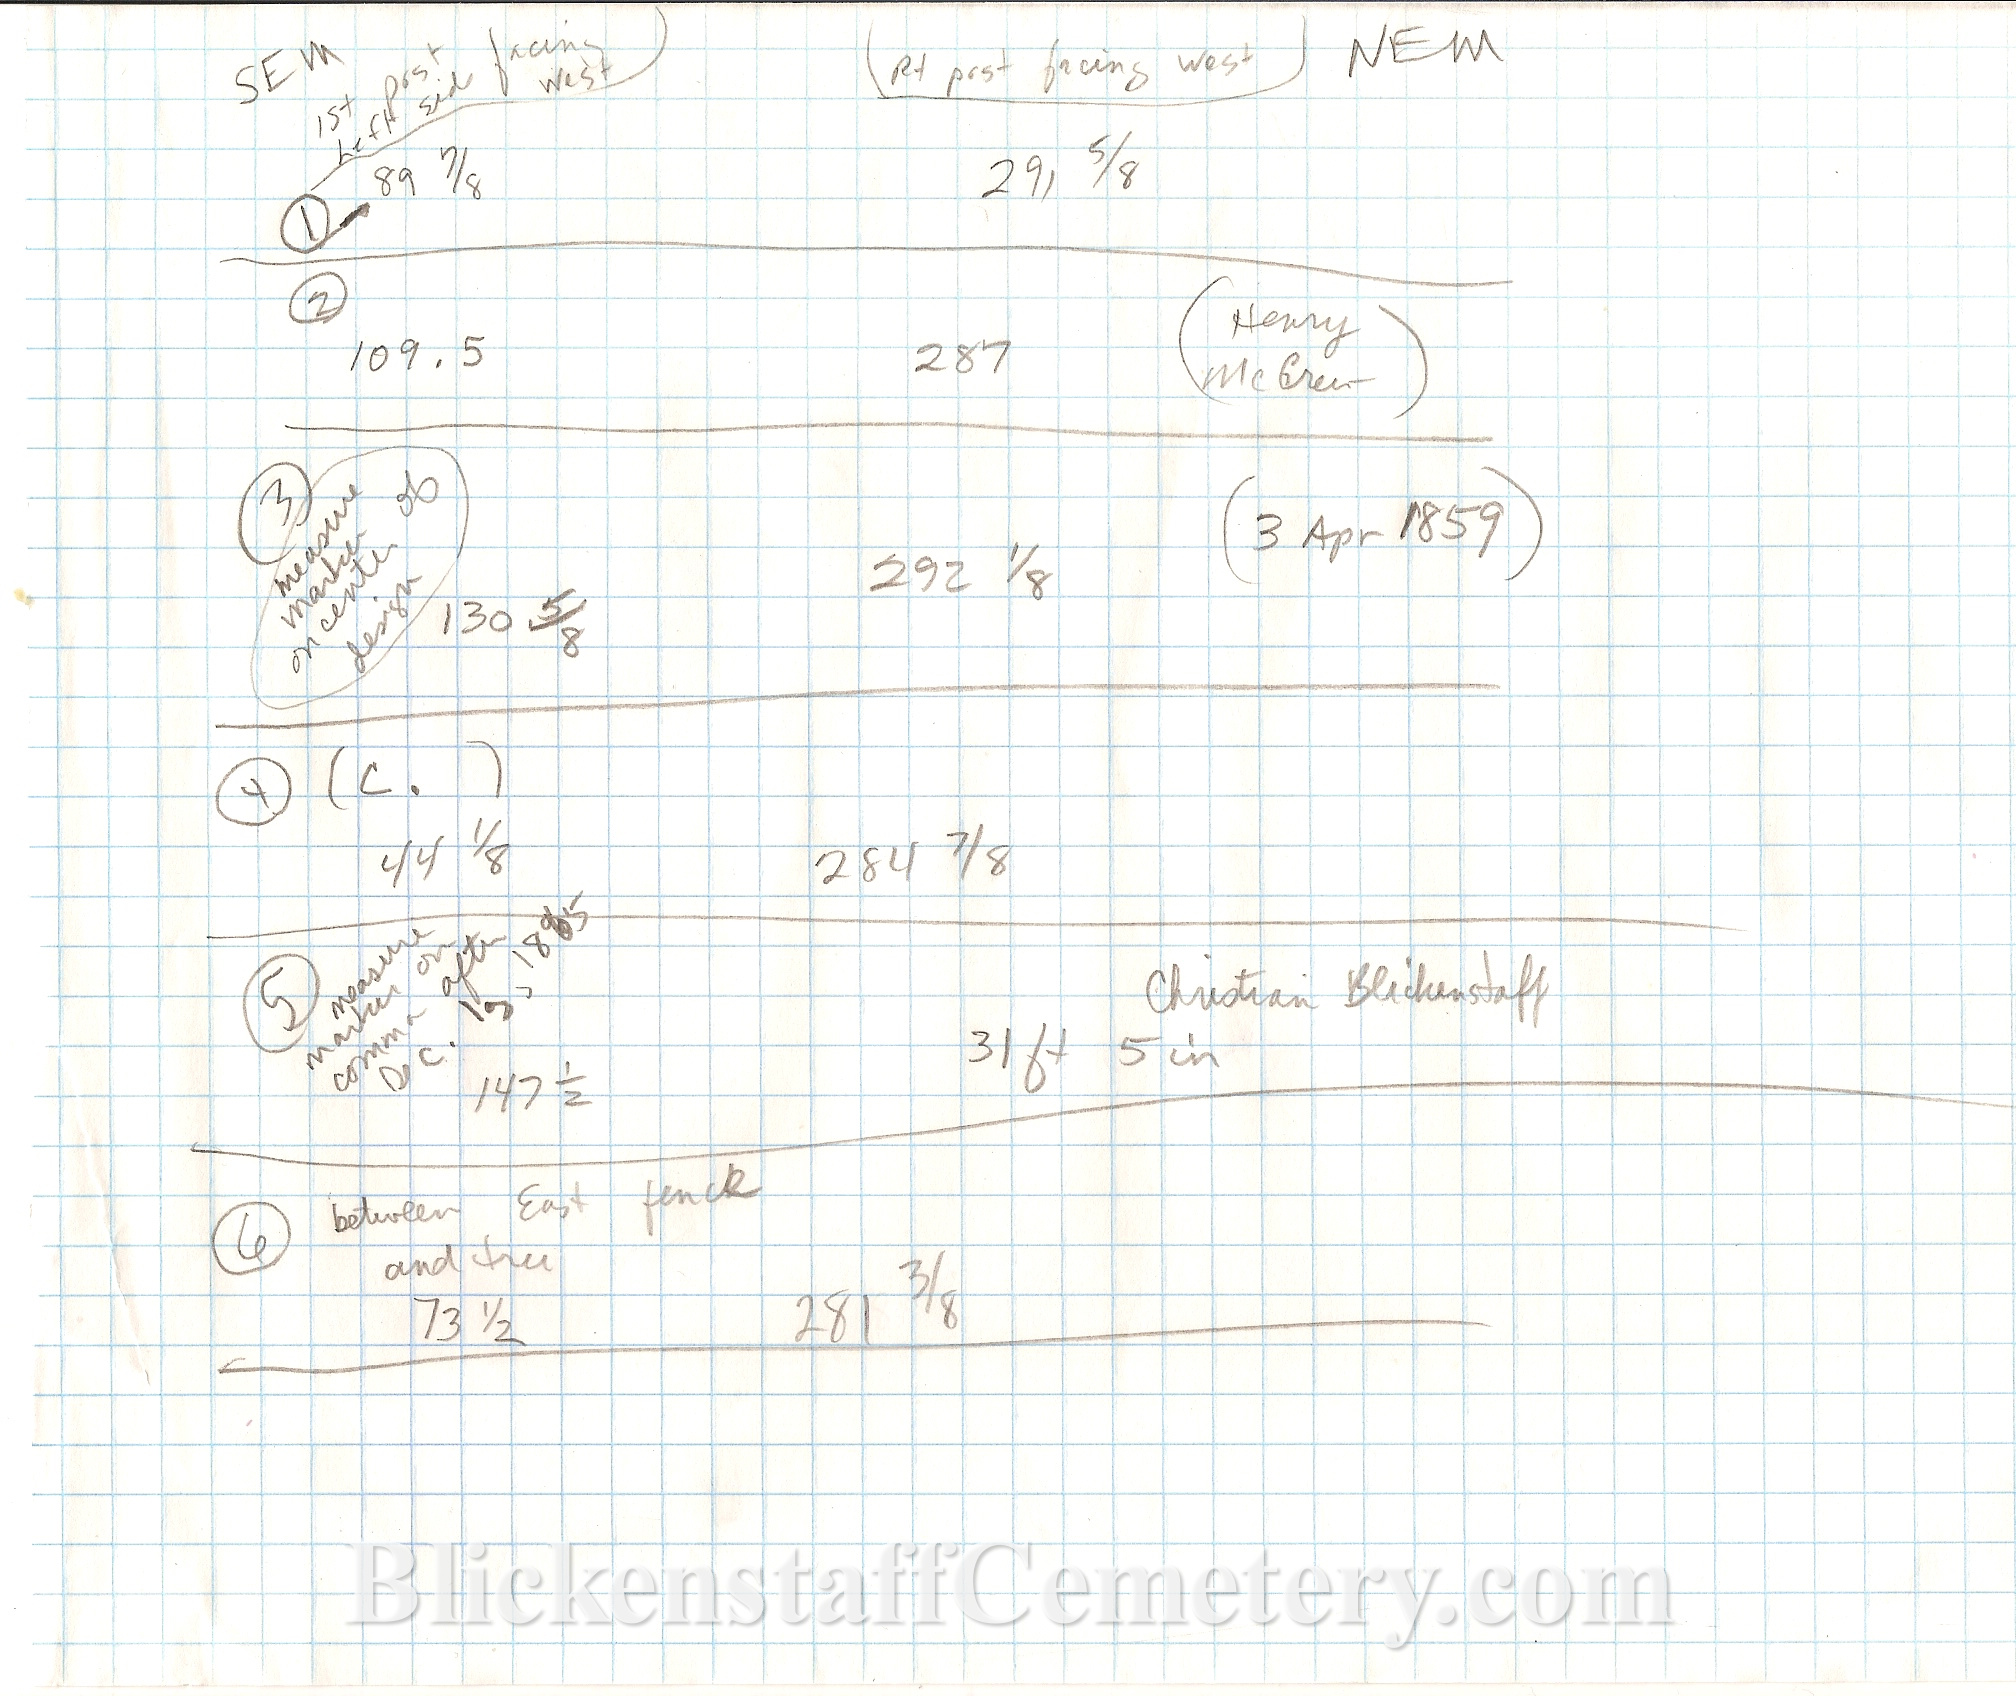 SEM
1st post facing
Left side west
(Rt post facing west) NEM
89 7/8
291 5/8
1
2
109.5
287
(Henry
McGrew)
3
measure
marker
on center of
design
130 5/8
292 1/8
(3 Apr 1859)
4 (C. )
44 1/8
284 7/8
5
measure
marker on
comma after
Dec. 1865
147 1/2
Christian Blickenstaff
31 ft 5 in
6 between East fence
and tree
73 1/2
281 3/8
BlickenstaffCemetery.com